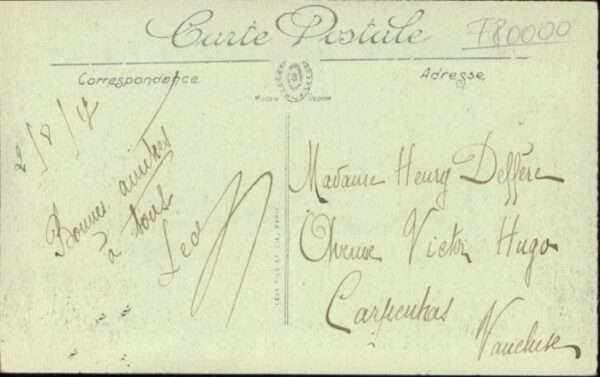 Carte Postale
F80000
Correspondance
Adresse
2/8/17
Bonnes amitiés
à tous
Madame Henry Deffère
Avenue Victor Hugo
Carpentras
Vaucluse